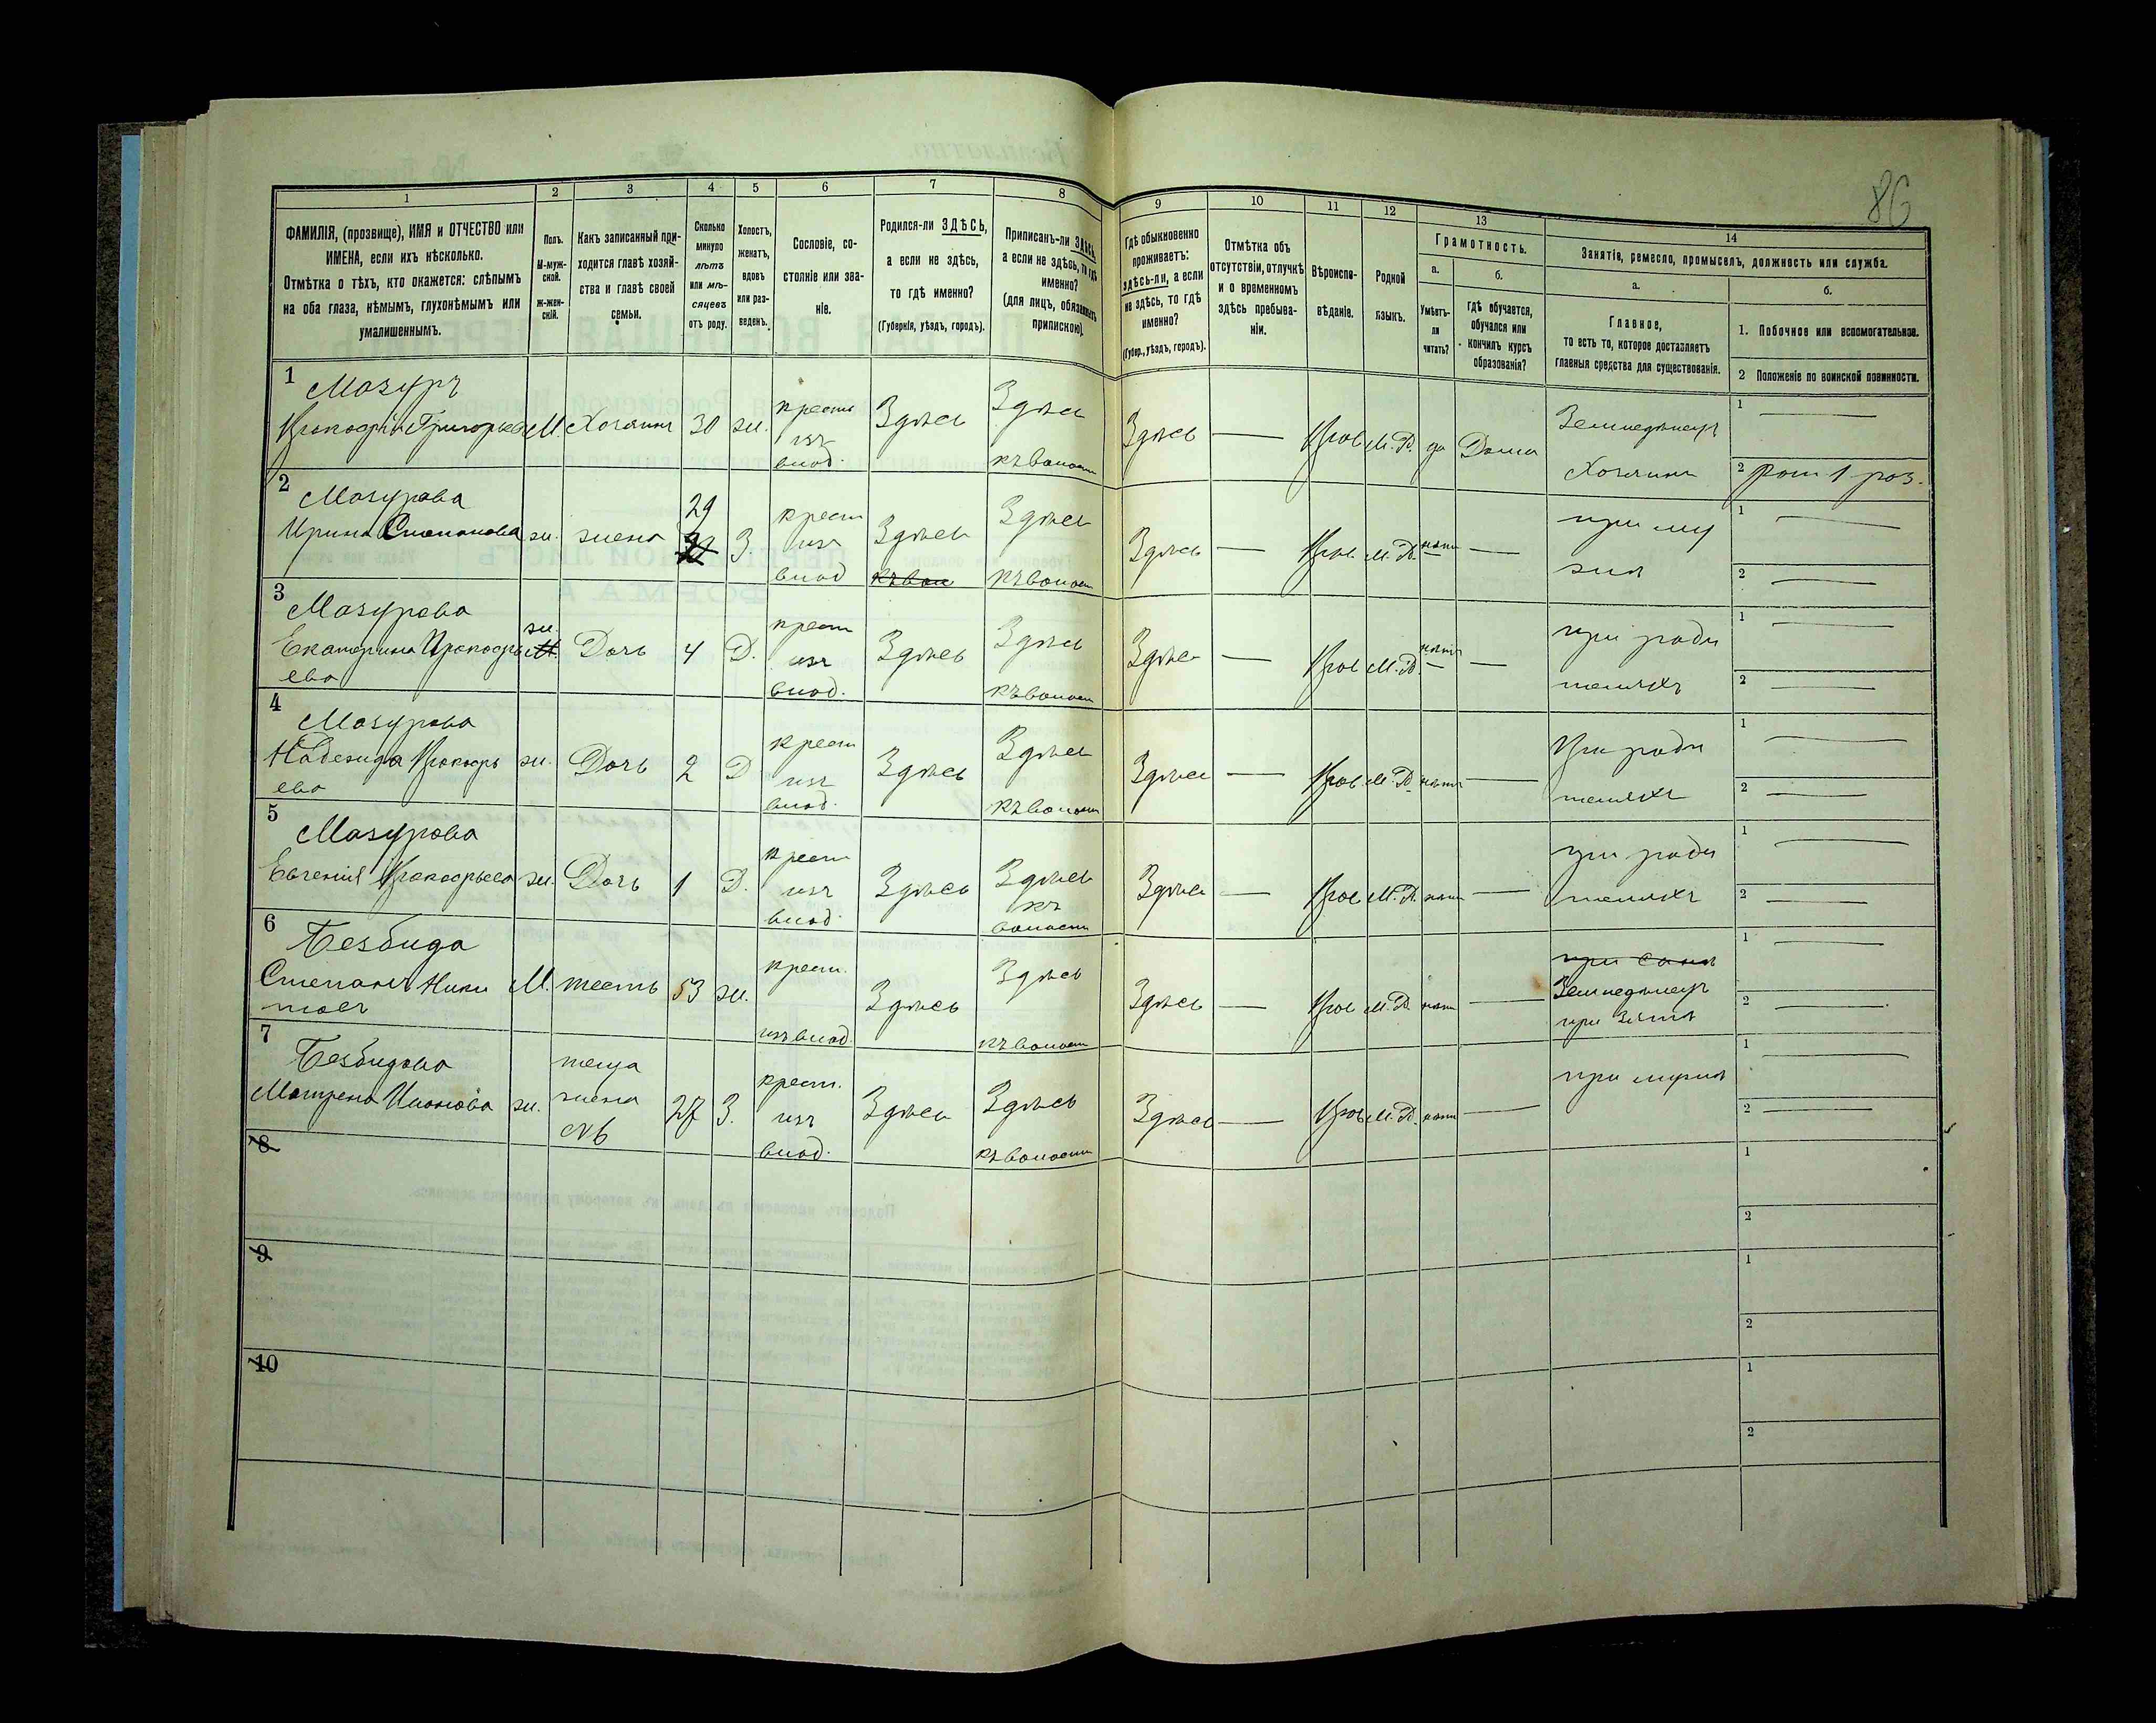 86
1 2 3 4 5 6 7 8 9 10 11 12 13 14
ФАМИЛІЯ, (прозвище), ИМЯ и ОТЧЕСТВО или
ИМЕНА, если ихъ нѣсколько.
Отмѣтка о тѣхъ, кто окажется: слѣпымъ
на оба глаза, нѣмымъ, глухонѣмымъ или
умалишеннымъ.
Полъ.
М-муж-
ской.
ж-жен-
скій.
Какъ записанный при-
ходится главѣ хозяй-
ства и главѣ своей
семьи.
Сколько
минуло
лѣтъ
или мѣ-
сяцевъ
отъ роду.
Холостъ,
женатъ,
вдовъ
или раз-
веденъ.
Сословіе, со-
стояніе или зва-
ніе.
Родился-ли ЗДѢСЬ,
а если не здѣсь,
то гдѣ именно?
(Губернія, уѣздъ, городъ).
Приписанъ-ли ЗДѢСЬ,
а если не здѣсь, то гдѣ
именно?
(для лицъ, обязанныхъ
припискою).
Гдѣ обыкновенно
проживаетъ:
здѣсь-ли, а если
не здѣсь, то гдѣ
именно?
(Губер., уѣздъ, городъ).
Отмѣтка объ
отсутствіи, отлучкѣ
и о временномъ
здѣсь пребыва-
ніи.
Вѣроиспо-
вѣданіе.
Родной
языкъ.
Грамотность.
а.
Умѣетъ-
ли
читать?
б.
гдѣ обучается,
обучался или
кончилъ курсъ
образованія?
Занятіе, ремесло, промыселъ, должность или служба.
а.
Главное,
то есть то, которое доставляетъ
главныя средства для существованія.
б.
1. Побочное или вспомогательное.
2 Положеніе по воинской повинности.
1 Мазуръ
Прокофій Григорьев М. Хозяинъ 30 ж. крест изъ влад. Здѣсь Здѣсь къ волости Здѣсь — Прав М. Р. да Дома Земледѣлецъ Хозяинъ
1 —
2 рат 1 раз.
2 Мазурова
Ирина Степанова ж. жена 29 З крест изъ влад Здѣсь Здѣсь къ волост Здѣсь — Прав. М. Р. нѣт — при му жѣ
1 —
2 —
3 Мазурова
Екатерина Прокофь
ева ж. Дочь 4 Д. крест изъ влад. Здѣсь Здѣсь къ волост Здѣсь — Прав М. Р. нѣтъ — при роди теляхъ
1 —
2 —
4 Мазурова
Надежда Прокофь
ева ж. Дочь 2 Д крест изъ влад. Здѣсь Здѣсь къ волост Здѣсь — Прав. М. Р нѣтъ — При роди теляхъ
1 —
2 —
5 Мазурова
Евгенія Прокофьева ж. Дочь 1 Д. крест изъ влад. Здѣсь Здѣсь къ волости Здѣсь — Прав М. Р. нѣт — при роди теляхъ
1 —
2 —
6 Безбида
Степанъ Ники
товъ М. тесть 53 ж. крест. изъ влад. Здѣсь Здѣсь къ волост Здѣсь — Прав М. Р. нѣт — Земледѣлецъ при Зятѣ
1 —
2 —
7 Безбидова
Матрена Иванова ж. теща жена 27 З. крест. изъ влад. Здѣсь Здѣсь къ волост Здѣсь — Прав М. Р. нѣт — при мужѣ
1 —
2 —
8
1
2
9
1
2
10
1
2